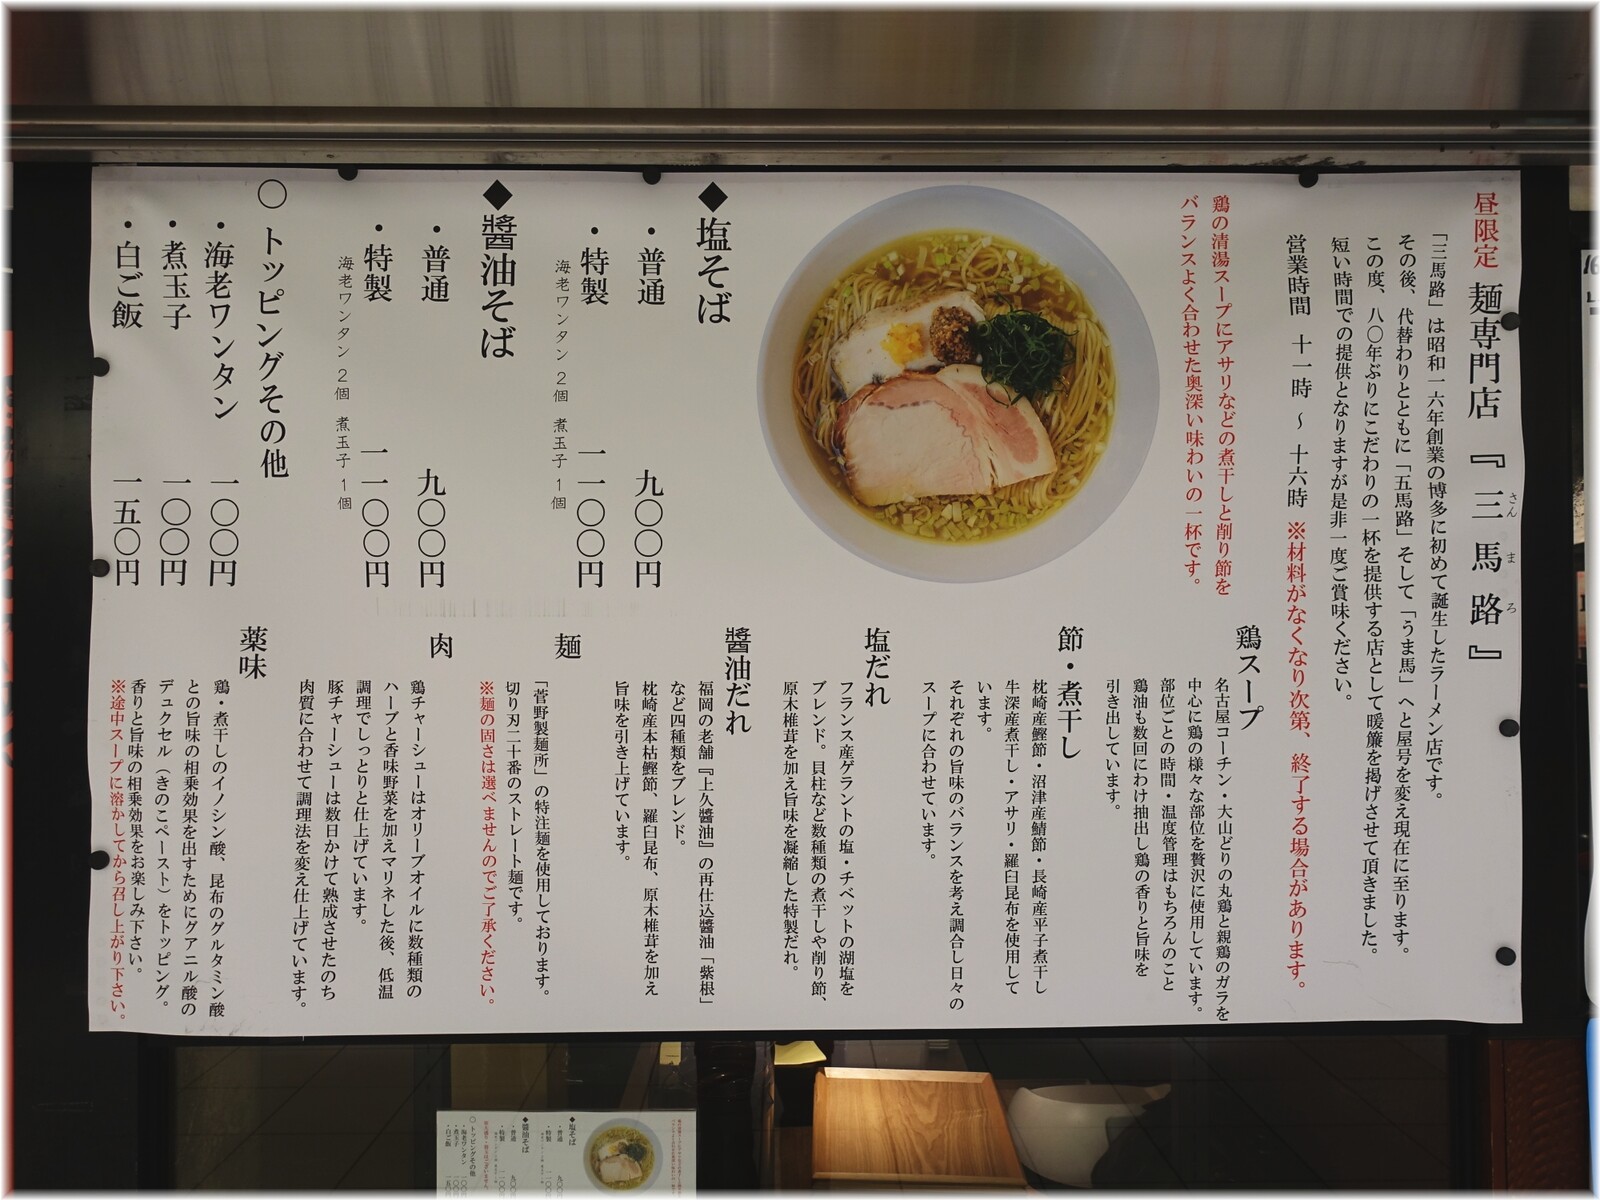 昼限定 麺専門店『三馬路』
さん ま ろ
「三馬路」は昭和一六年創業の博多に初めて誕生したラーメン店です。
その後、代替わりとともに「五馬路」そして「うま馬」へと屋号を変え現在に至ります。
この度、八〇年ぶりにこだわりの一杯を提供する店として暖簾を掲げさせて頂きました。
短い時間での提供となりますが是非一度ご賞味ください。
営業時間 十一時 ~ 十六時 ※材料がなくなり次第、終了する場合があります。
鶏の清湯スープにアサリなどの煮干しと削り節を
バランスよく合わせた奥深い味わいの一杯です。
◆塩そば
・普通 九〇〇円
・特製 一一〇〇円
海老ワンタン2個 煮玉子1個
◆醬油そば
・普通 九〇〇円
・特製 一一〇〇円
海老ワンタン2個 煮玉子1個
〇トッピングその他
・海老ワンタン 一〇〇円
・煮玉子 一〇〇円
・白ご飯 一五〇円
鶏スープ
名古屋コーチン・大山どりの丸鶏と親鶏のガラを
中心に鶏の様々な部位を贅沢に使用しています。
部位ごとの時間・温度管理はもちろんのこと
鶏油も数回にわけ抽出し鶏の香りと旨味を
引き出しています。
節・煮干し
枕崎産鰹節・沼津産鯖節・長崎産平子煮干し
牛深産煮干し・アサリ・羅臼昆布を使用して
います。
それぞれの旨味のバランスを考え調合し日々の
スープに合わせています。
塩だれ
フランス産ゲラントの塩・チベットの湖塩を
ブレンド。貝柱など数種類の煮干しや削り節、
原木椎茸を加え旨味を凝縮した特製だれ。
醬油だれ
福岡の老舗『上久醬油』の再仕込醬油「紫根」
など四種類をブレンド。
枕崎産本枯鰹節、羅臼昆布、原木椎茸を加え
旨味を引き上げています。
麺
「菅野製麺所」の特注麺を使用しております。
切り刃二十番のストレート麺です。
※麺の固さは選べませんのでご了承ください。
肉
鶏チャーシューはオリーブオイルに数種類の
ハーブと香味野菜を加えマリネした後、低温
調理でしっとりと仕上げています。
豚チャーシューは数日かけて熟成させたのち
肉質に合わせて調理法を変え仕上げています。
薬味
鶏・煮干しのイノシン酸、昆布のグルタミン酸
との旨味の相乗効果を出すためにグアニル酸の
デュクセル（きのこペースト）をトッピング。
香りと旨味の相乗効果をお楽しみ下さい。
※途中スープに溶かしてから召し上がり下さい。